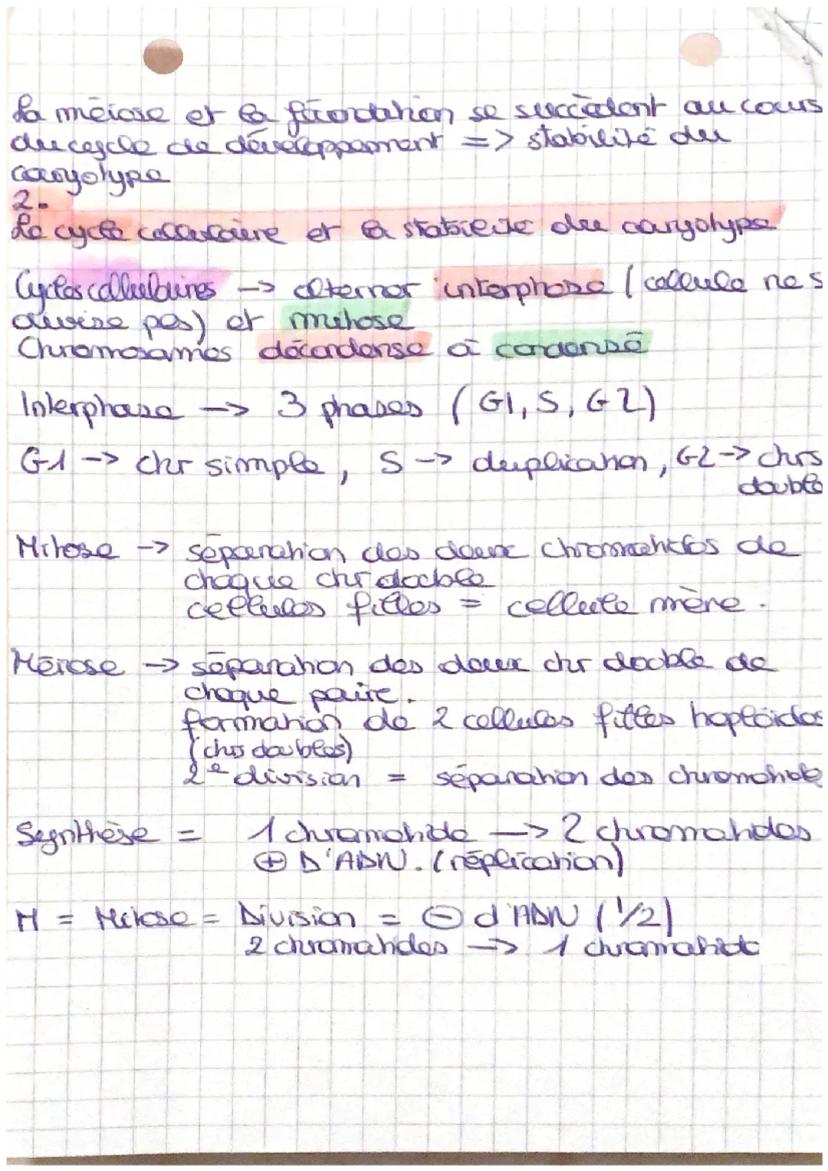 La méiose et la fécondation se succèdent au cours
du cycle de développement => stabilité du
caryotype
2.
Le cycle cellulaire et la stabilité du caryotype
Cycles cellulaires -> alterner interphase (cellule ne s
divise pas) et mitose
Chromosomes décondensé à condensé
Interphase -> 3 phases (G1, S, G2)
G1 -> chr simple, S -> duplication, G2 -> chrs
double
Mitose -> séparation des deux chromatides de
chaque chr double
cellules filles = cellule mère.
Méiose -> séparation des deux chr double de
chaque paire.
formation de 2 cellules filles haploïdes
(chrs doubles)
2e division = séparation des chromatide
Synthèse = 1 chromatide -> 2 chromatides
⊕ D'ADN. (réplication)
M = Mitose = Division = ⊖ d'ADN (1/2)
2 chromatides -> 1 chromatide